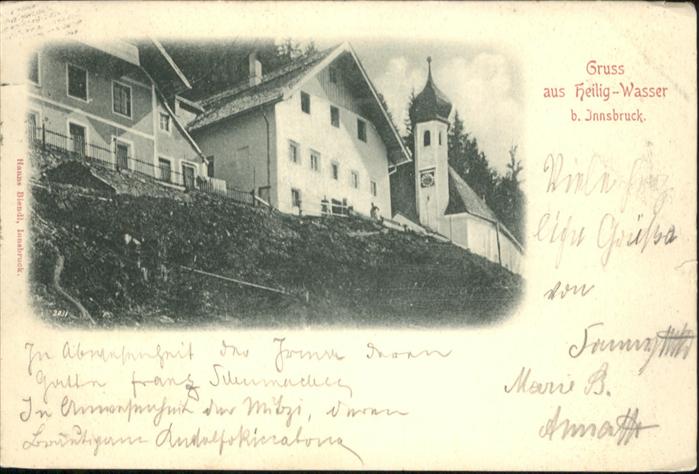 Gruss
aus Heilig-Wasser
b. Innsbruck.
Hanns Biendl, Innsbruck.
2811
Viele herz
liche Grüße
von
Marie B.
Anna
In Abwesenheit der Irma deren
Gatte Franz Schumacher
In Anwesenheit der Mitzi, deren
Bräutigam